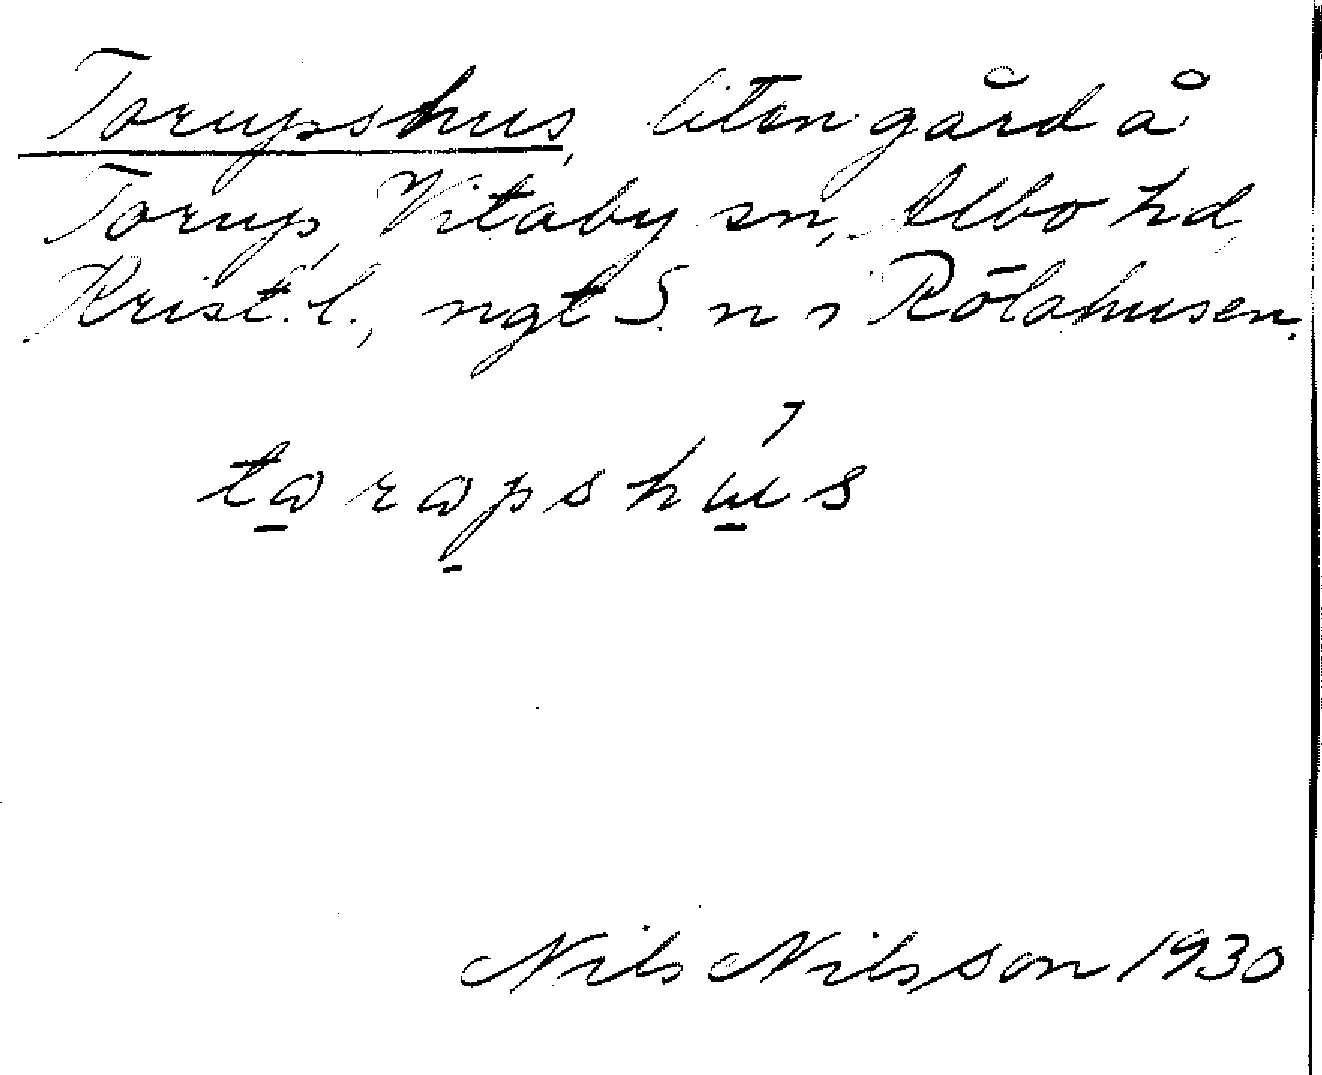 Torupshus, liten gård å
Torup, Vitaby sn, Albo hd,
Krist. l., ngt S. n i Rölahusen.
toropshus
Nils Nilsson 1930